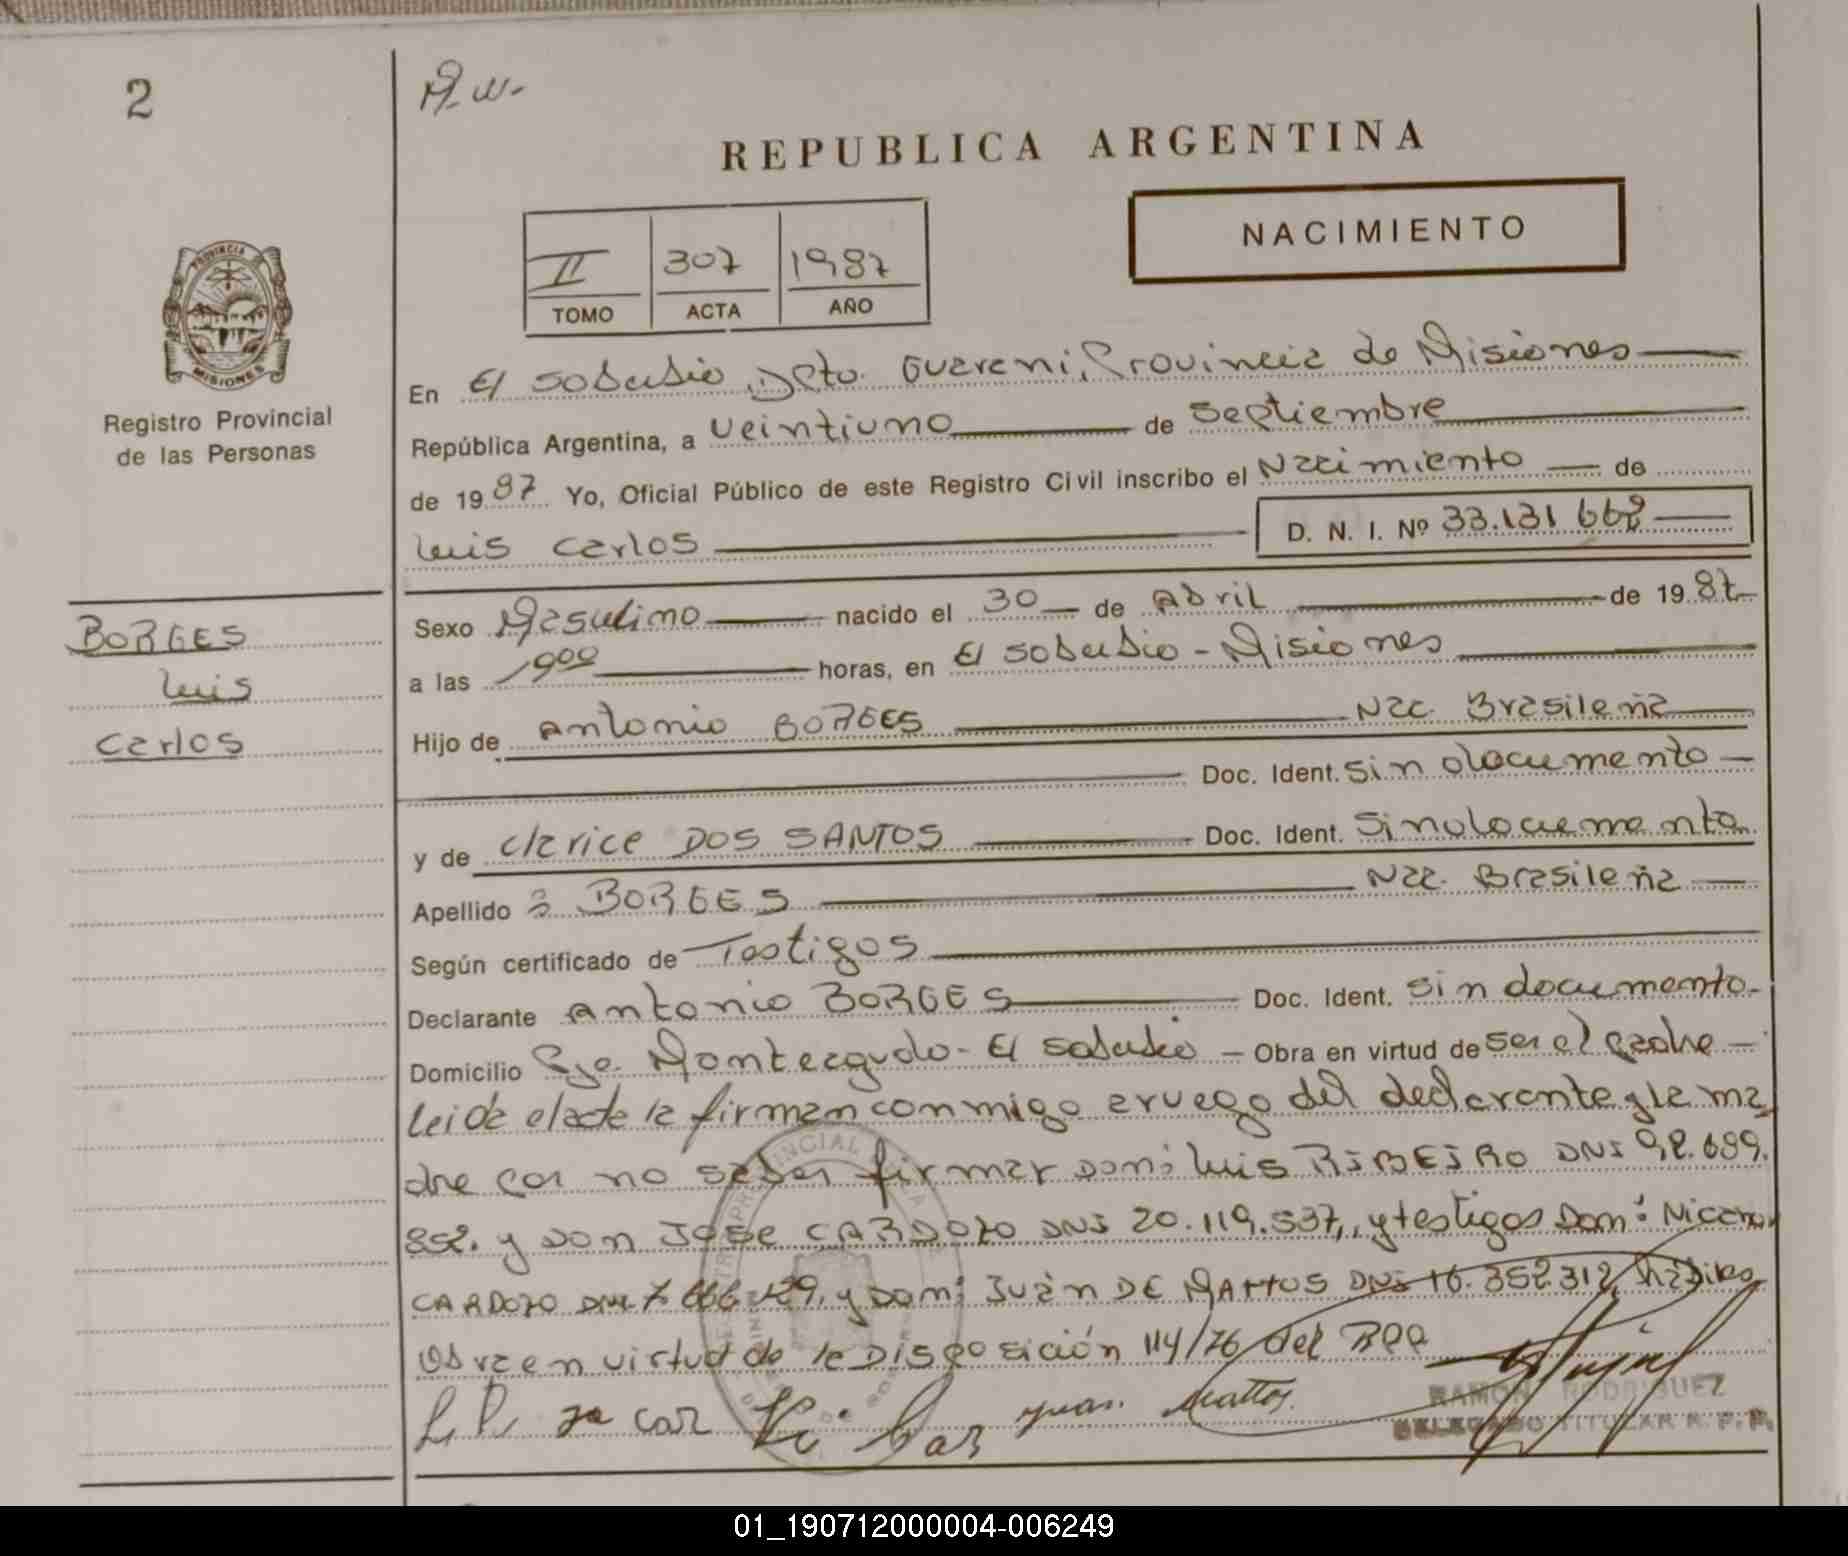 2
REPUBLICA ARGENTINA
NACIMIENTO
II 307 1987
TOMO ACTA AÑO
PROVINCIA
MISIONES
Registro Provincial
de las Personas
BORGES
Luis
Carlos
En El soberbio Dpto. Guarani, Provincia de Misiones
República Argentina, a veintiuno de septiembre
de 1987 Yo, Oficial Público de este Registro Civil inscribo el Nacimiento de
Luis Carlos D. N. I. Nº 33.131.668
Sexo Masculino nacido el 30 de Abril de 1987
a las 1900 horas, en El soberbio - Misiones
Hijo de Antonio BORGES Nac. Brasileña
Doc. Ident. sin documento
y de Clarice DOS SANTOS Doc. Ident. sin documento
Apellido BORGES Nac. Brasileña
Según certificado de Testigos
Declarante Antonio BORGES Doc. Ident. sin documento
Domicilio Pje. Monteagudo - El soberbio Obra en virtud de ser el padre
leida el acta la firman conmigo a ruego del declarante y la ma
dre por no saber firmar Dom: Luis RIBEIRO DNI 92.699.
852. y Don JOSE CARDOZO DNI 20.119.537, y testigos Dom: Nicanor
CARDOZO DNI 7. y Dom: Juan DE MATTOS DNI 16.352.312
Obra en virtud de la Disposición 114/76 del RPP
Juan Mattos
RAMON RODRIGUEZ
DELEGADO TITULAR R. P. P.
01_190712000004-006249